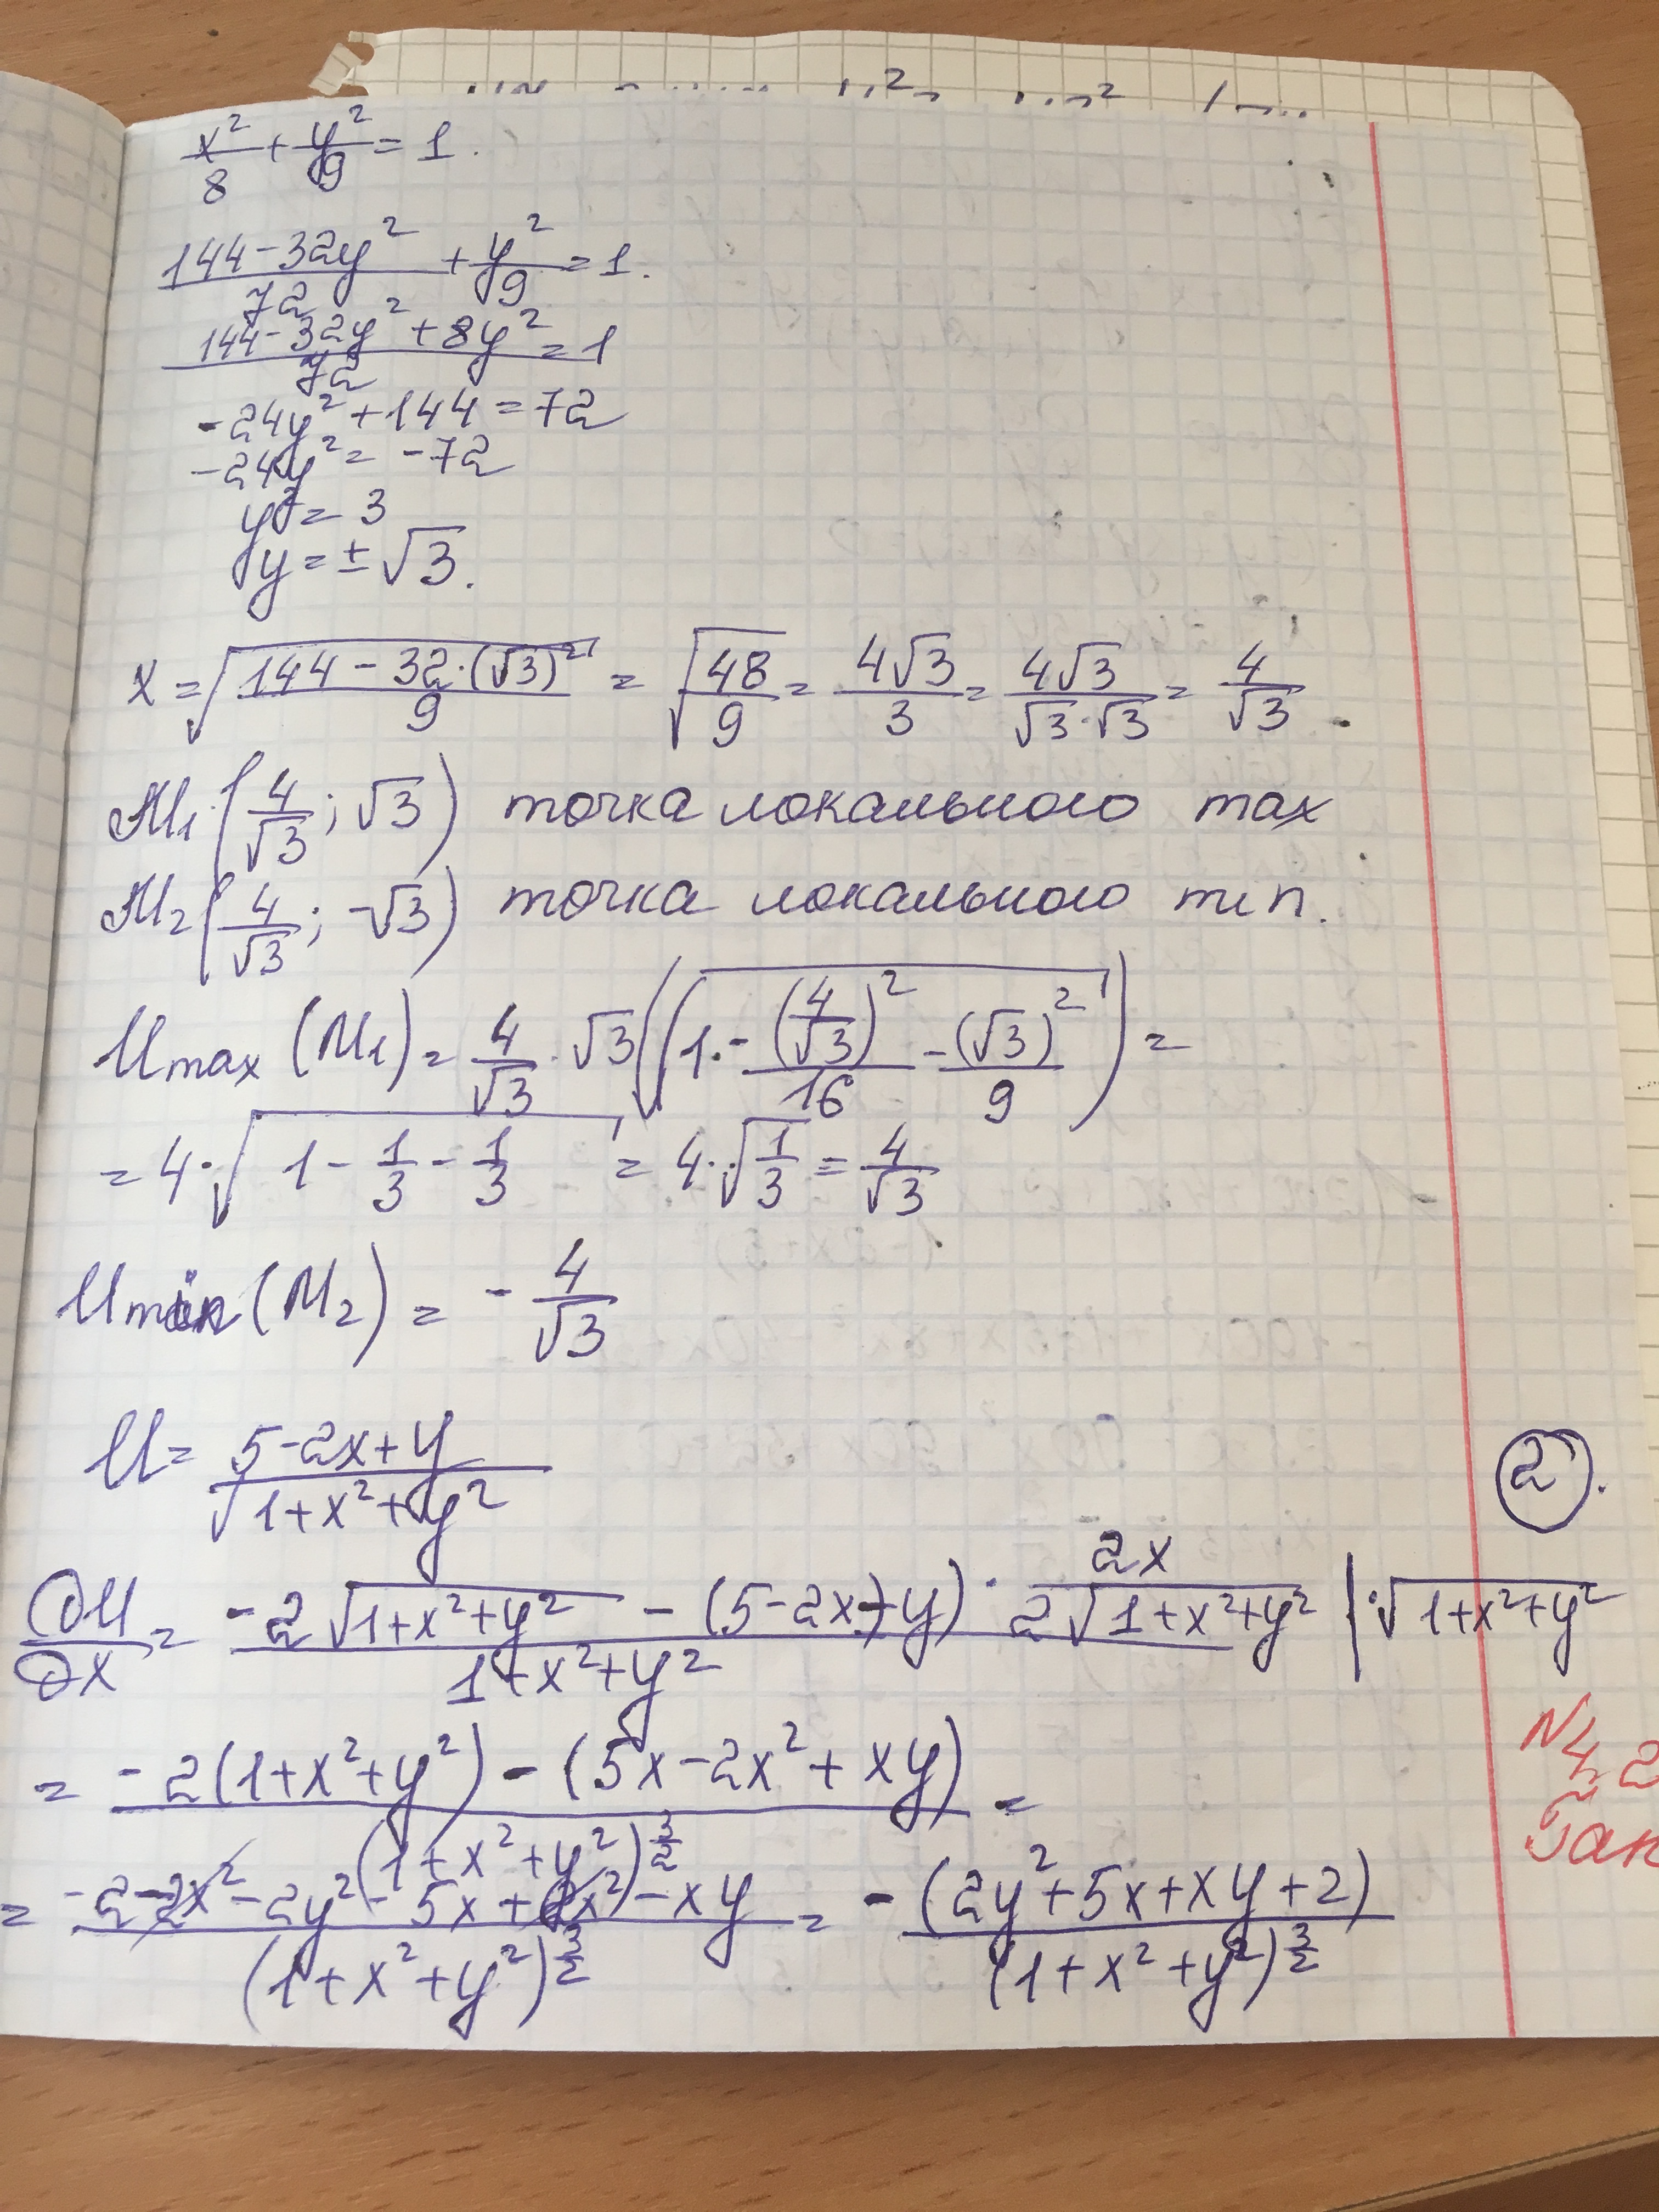 x²/8 + y²/9 = 1.
(144-32y²)/72 + y²/9 = 1.
(144-32y²+8y²)/72 = 1
-24y²+144=72
-24y²= -72
y²= 3
y=±√3.
x = √((144-32·(√3)²)/9) = √(48/9) = 4√3/3 = 4√3/(√3·√3) = 4/√3.
M₁(4/√3; √3) точка локального max
M₂(4/√3; -√3) точка локального min.
Umax (M₁) = 4/√3 · √3 (√(1 - (4/√3)²/16 - (√3)²/9)) =
= 4·√(1 - 1/3 - 1/3) = 4·√(1/3) = 4/√3
Umin (M₂) = - 4/√3
U = (5-2x+y)/√(1+x²+y²)
2.
∂U/∂x = (-2√(1+x²+y²) - (5-2x+y) · 2x/(2√(1+x²+y²)))/(1+x²+y²) |·√(1+x²+y²)
= (-2(1+x²+y²) - (5x-2x²+xy))/(1+x²+y²)^(3/2) =
N4, 2
= (-2-2x²-2y²-5x+2x²-xy)/(1+x²+y²)^(3/2) = -(2y²+5x+xy+2)/(1+x²+y²)^(3/2)